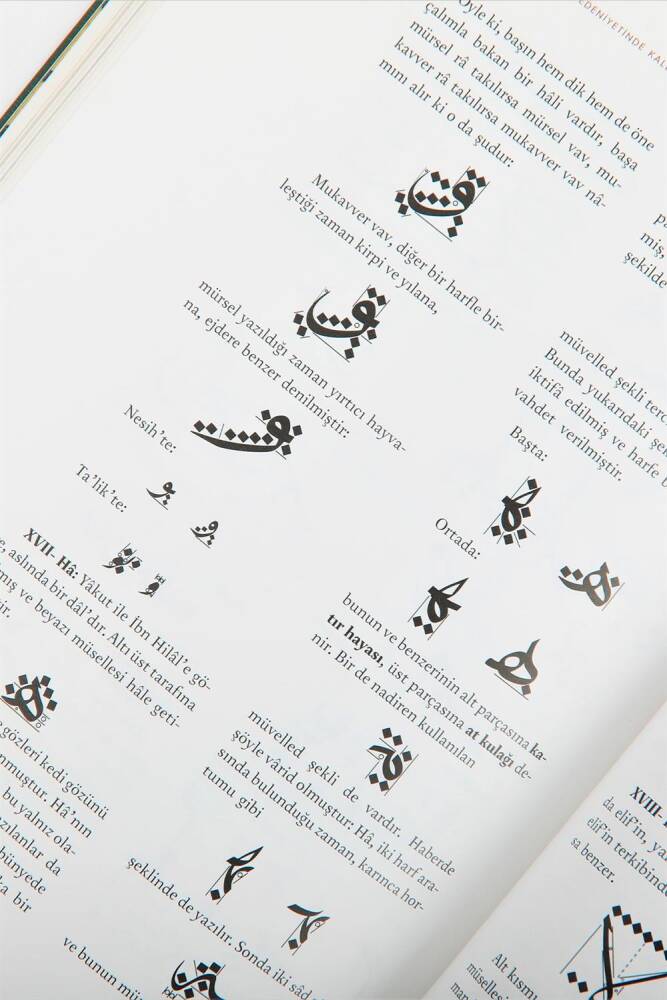 DENİYETİNDE KAL
Öyle ki, başın hem dik hem de öne
çalımla bakan bir hâli vardır, başa
mürsel râ takılırsa mürsel vav, mu-
kavver râ takılırsa mukavver vav nâ-
mını alır ki o da şudur:
Mukavver vav, diğer bir harfle bir-
leştiği zaman kirpi ve yılana,
mürsel yazıldığı zaman yırtıcı hayva-
na, ejdere benzer denilmiştir:
Nesih'te:
Ta'lik'te:
XVII- Hâ: Yâkut ile İbn Hilâl'e gö-
e, aslında bir dâl'dır. Altı üst tarafına
mış ve beyazı müsellesi hâle geti-
gözleri kedi gözünü
nmuştur. Hâ'nın
bu yalnız ola-
azılanlar da
bünyede
ka bir
miş,
şekilde
müvelled şekli
Bunda yukarıdaki şek
iktifâ edilmiş ve harfe b
vahdet verilmiştir.
Başta:
Ortada:
bunun ve benzerinin alt parçasına ka-
tır hayası, üst parçasına at kulağı de-
nir. Bir de nadiren kullanılan
müvelled şekli de vardır. Haberde
şöyle vârid olmuştur: Hâ, iki harf ara-
sında bulunduğu zaman, karınca hor-
tumu gibi
şeklinde de yazılır. Sonda iki sâd
ve bunun mü
XVIII-
da elif'in, ya
elif'in terkibinde
sa benzer.
Alt kısmı
müselles